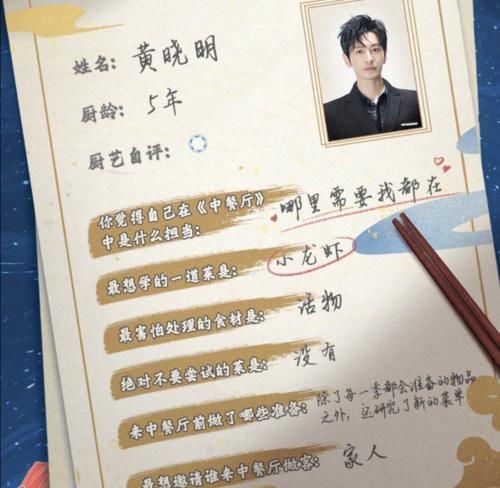 姓名：黄晓明
厨龄：5年
厨艺自评：
你觉得自己在《中餐厅》
中是什么担当：哪里需要我都在
最想学的一道菜是：小龙虾
最害怕处理的食材是：活物
绝对不要尝试的菜是：没有
来中餐厅前做了哪些准备：除了每一季都会准备的物品
之外，还研究了新的菜单
最想邀请谁来中餐厅做客：家人